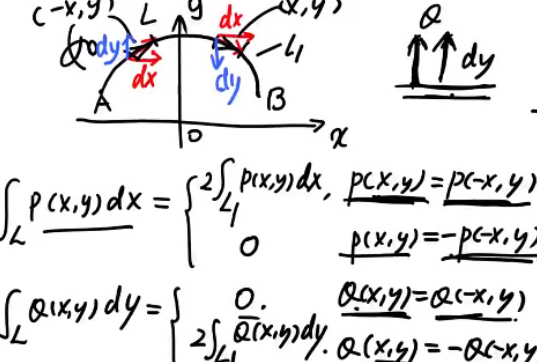 (-x,y) L y dx (x,y)
dy dx dy L₁ Q dy
A B
O x
∫_L P(x,y)dx = { 2∫_{L₁} P(x,y)dx, P(x,y)=P(-x,y)
0 P(x,y)=-P(-x,y)
∫_L Q(x,y)dy = { 0. Q(x,y)=Q(-x,y).
2∫_{L₁} Q(x,y)dy. Q(x,y)=-Q(-x,y